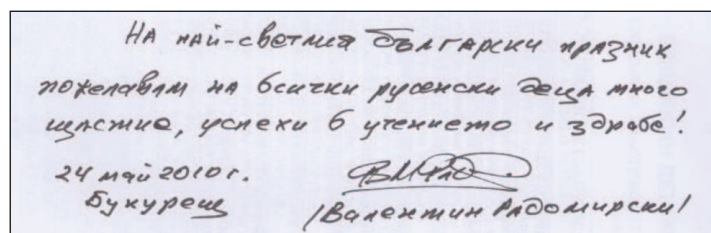 На най-светлия български празник
пожелавам на всички русенски деца много
щастие, успехи в учението и здраве!
24 май 2010 г.
Букурещ
/Валентин Радомирски/